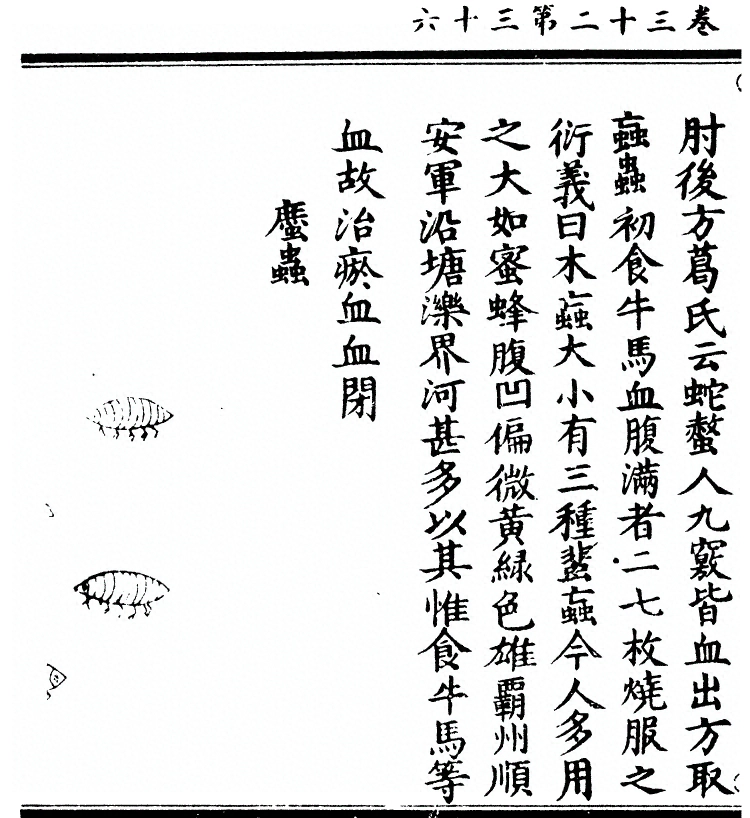 卷三十二第三十六
肘後方葛氏云蛇螫人九竅皆血出方取
蝱蟲初食牛馬血腹滿者二七枚燒服之
衍義曰木蝱大小有三種蜚蝱今人多用
之大如蜜蜂腹凹偏微黃綠色雄霸州順
安軍沿塘濼界河甚多以其惟食牛馬等
血故治瘀血血閉
䗪蟲